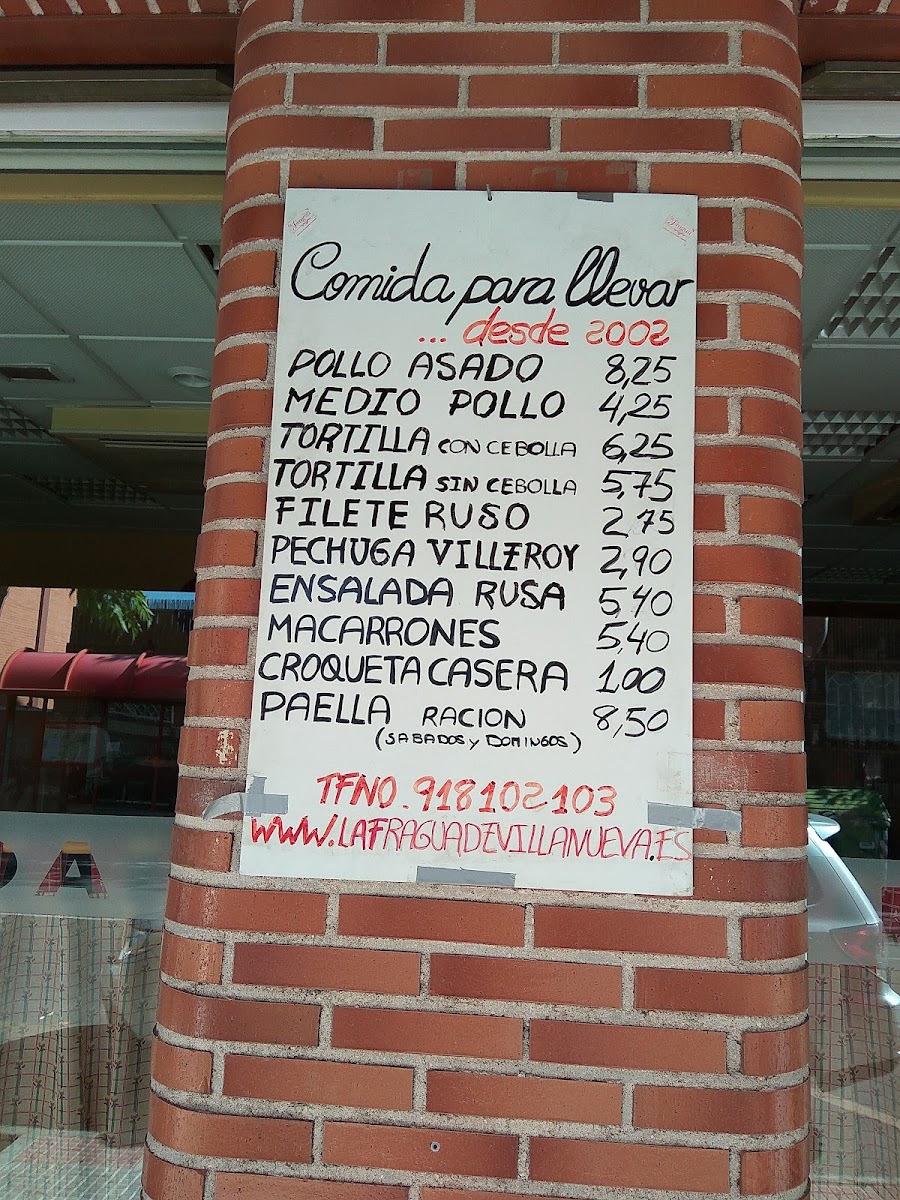 Comida para llevar
... desde 2002
POLLO ASADO 8,25
MEDIO POLLO 4,25
TORTILLA CON CEBOLLA 6,25
TORTILLA SIN CEBOLLA 5,75
FILETE RUSO 2,75
PECHUGA VILLEROY 2,90
ENSALADA RUSA 5,40
MACARRONES 5,40
CROQUETA CASERA 1,00
PAELLA RACION 8,50
(SABADOS y DOMINGOS)
TFNO. 918102103
WWW.LAFRAGUADEVILLANUEVA.ES
DA